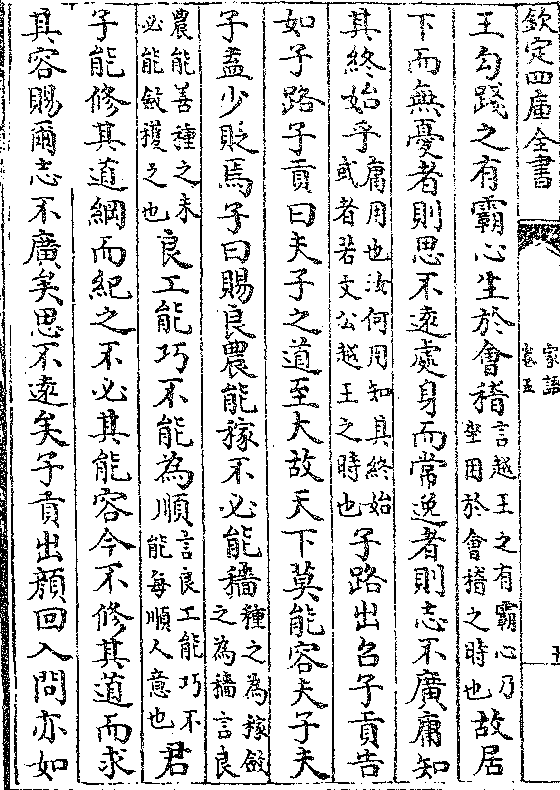 欽定四庫全書
家語
卷五
王勾踐之有霸心生於會稽言越王之有霸心乃坐困於會稽之時也故居
下而無憂者則思不逺處身而常逸者則志不廣庸知
其終始乎庸用也汝何用知其終始或者若文公越王之時也子路出召子貢告
如子路子貢曰夫子之道至大故天下莫能容夫子夫
子盍少貶焉子曰賜良農能稼不必能穡種之為稼斂之為穡言良
農能善種之未必能斂穫之也良工能巧不能為順言良工能巧不能每順人意也君
子能修其道綱而紀之不必其能容今不修其道而求
其容賜爾志不廣矣思不逺矣子貢出顔回入問亦如